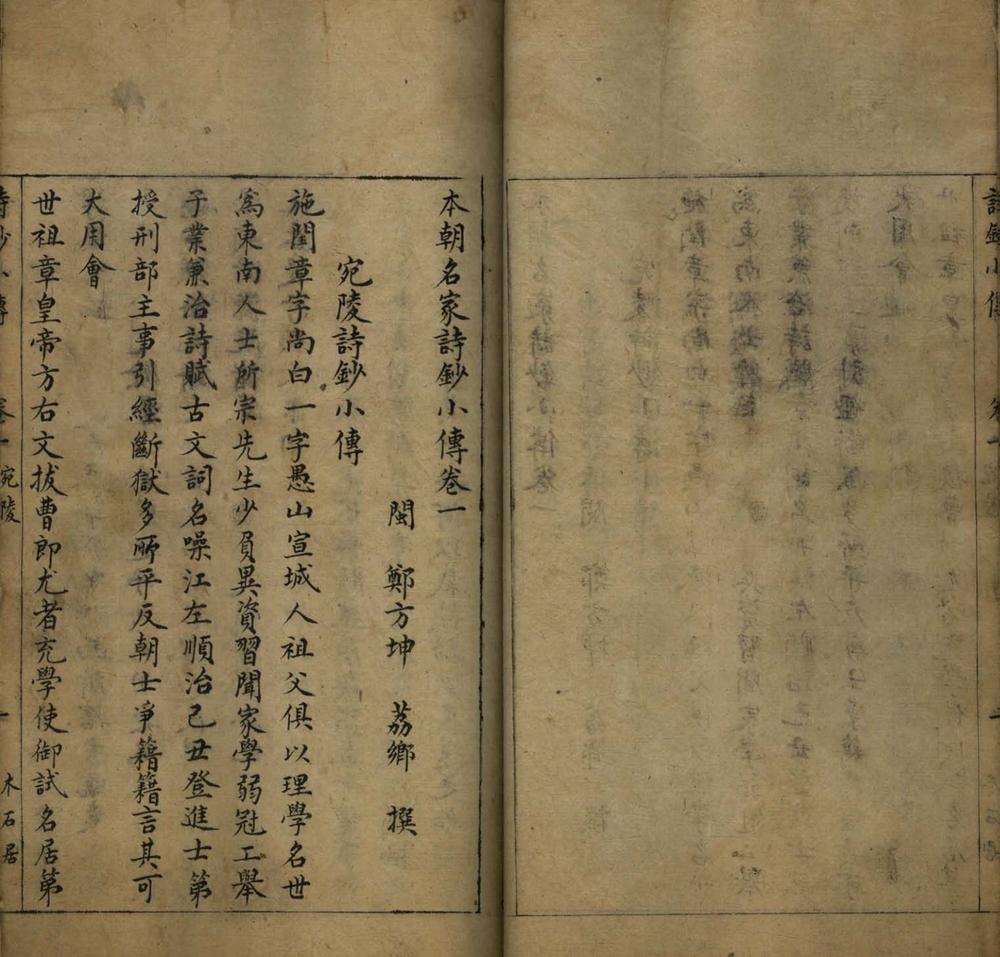 本朝名家詩鈔小傳卷一
閩 鄭方坤 荔鄉 撰
宛陵詩鈔小傳
施閏章字尚白一字愚山宣城人祖父俱以理學名世
爲東南人士所宗先生少負異資習聞家學弱冠工舉
子業兼治詩賦古文詞名噪江左順治己丑登進士第
授刑部主事引經斷獄多所平反朝士爭籍籍言其可
大用會
世祖章皇帝方右文拔曹郎尤者充學使御試名居第
詩鈔小傳 卷一 宛陵 一 木石居